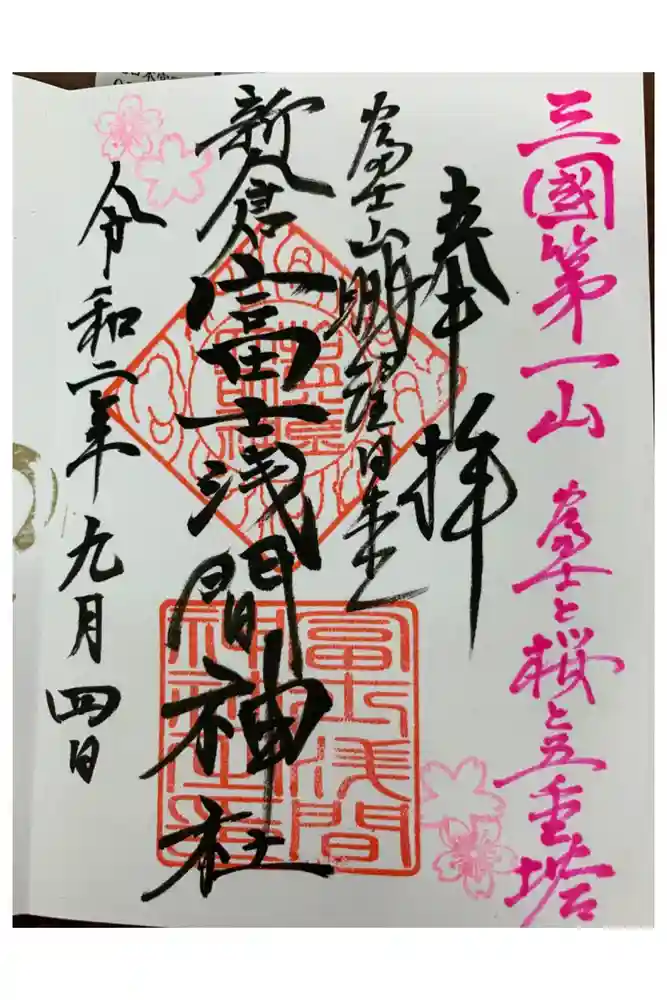 三國第一山 富士と桜と五重塔
奉拝
富士山
新倉富士浅間神社
令和二年九月四日
富士浅間